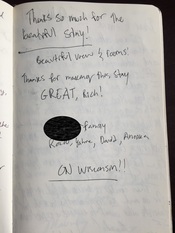 Thanks so much for the
beautiful Stay!
Beautiful views & Rooms!
Thanks for making this stay
GREAT, Rich!
Family
David,
ON WISCONSIN!!